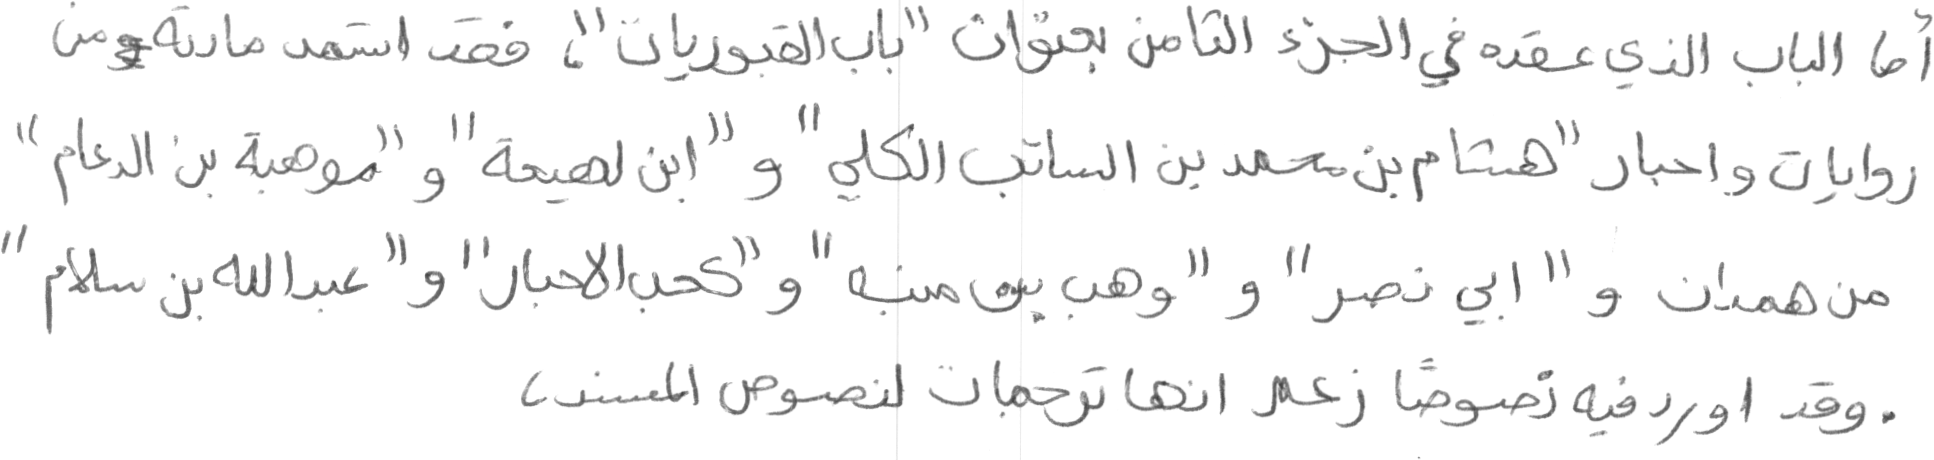 أما الباب الذي عقده في الجزء الثامن بعنوان "باب القبوريات"، فقد استمد مادته من
روايات واخبار "هشام بن محمد بن السائب الكلبي" و "ابن لهيعة" و "موهبة بن الدعام"
من همدان و "ابي نصر" و "وهب بن منبه" و "كعب الاحبار" و "عبدالله بن سلام"
. وقد اورد فيه نصوصًا زعم انها ترجمات لنصوص المسند،